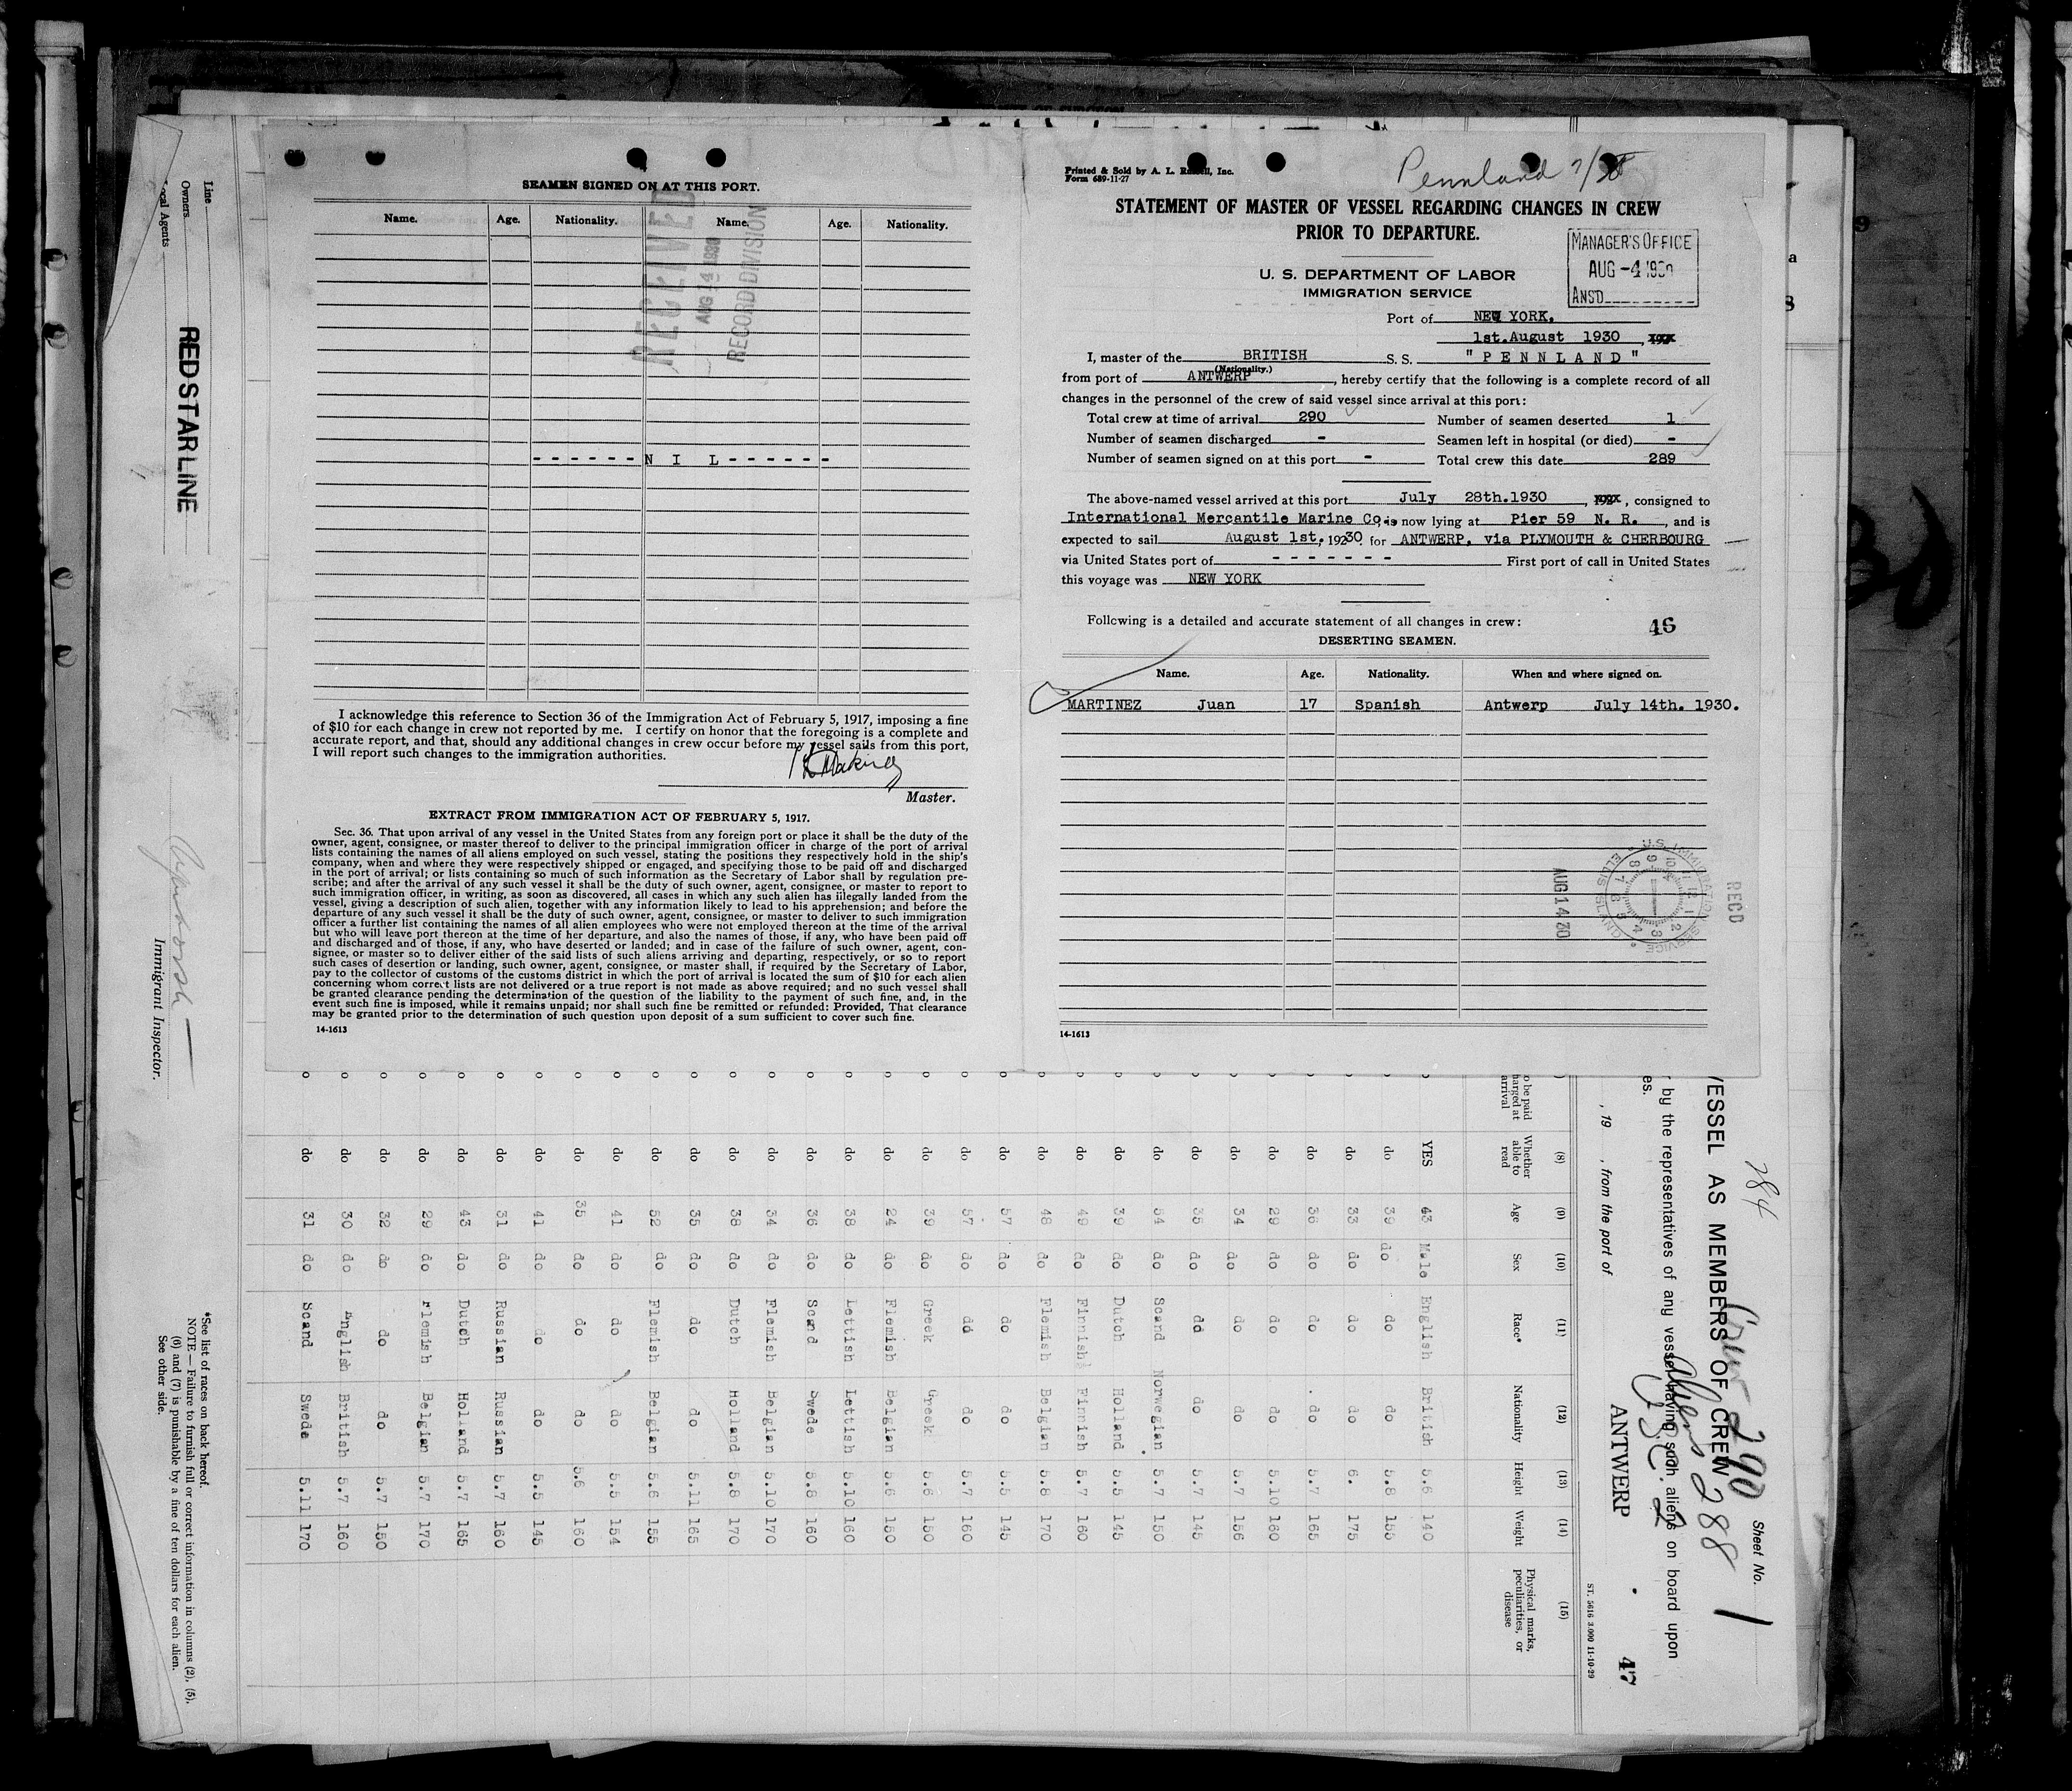 SEAMEN SIGNED ON AT THIS PORT.
Name. Age. Nationality. Name. Age. Nationality.
RECEIVED
AUG 14 1930
RECORD DIVISION
- - - - - - N I L - - - - - -
I acknowledge this reference to Section 36 of the Immigration Act of February 5, 1917, imposing a fine
of $10 for each change in crew not reported by me. I certify on honor that the foregoing is a complete and
accurate report, and that, should any additional changes in crew occur before my vessel sails from this port,
I will report such changes to the immigration authorities.
Master.
EXTRACT FROM IMMIGRATION ACT OF FEBRUARY 5, 1917.
Sec. 36. That upon arrival of any vessel in the United States from any foreign port or place it shall be the duty of the
owner, agent, consignee, or master thereof to deliver to the principal immigration officer in charge of the port of arrival
lists containing the names of all aliens employed on such vessel, stating the positions they respectively hold in the ship's
company, when and where they were respectively shipped or engaged, and specifying those to be paid off and discharged
in the port of arrival; or lists containing so much of such information as the Secretary of Labor shall by regulation pre-
scribe; and after the arrival of any such vessel it shall be the duty of such owner, agent, consignee, or master to report to
such immigration officer, in writing, as soon as discovered, all cases in which any such alien has illegally landed from the
vessel, giving a description of such alien, together with any information likely to lead to his apprehension; and before the
departure of any such vessel it shall be the duty of such owner, agent, consignee, or master to deliver to such immigration
officer a further list containing the names of all alien employees who were not employed thereon at the time of the arrival
but who will leave port thereon at the time of her departure, and also the names of those, if any, who have been paid off
and discharged and of those, if any, who have deserted or landed; and in case of the failure of such owner, agent, con-
signee, or master so to deliver either of the said lists of such aliens arriving and departing, respectively, or so to report
such cases of desertion or landing, such owner, agent, consignee, or master shall, if required by the Secretary of Labor,
pay to the collector of customs of the customs district in which the port of arrival is located the sum of $10 for each alien
concerning whom correct lists are not delivered or a true report is not made as above required; and no such vessel shall
be granted clearance pending the determination of the question of the liability to the payment of such fine, and, in the
event such fine is imposed, while it remains unpaid; nor shall such fine be remitted or refunded: Provided, That clearance
may be granted prior to the determination of such question upon deposit of a sum sufficient to cover such fine.
14-1613
Printed & Sold by A. L. Russell, Inc.
Form 689-11-27
Pennland 7/
STATEMENT OF MASTER OF VESSEL REGARDING CHANGES IN CREW
PRIOR TO DEPARTURE.
MANAGER'S OFFICE
AUG -4 1930
ANS'D
U. S. DEPARTMENT OF LABOR
IMMIGRATION SERVICE
Port of NEW YORK.
1st.August 1930
I, master of the BRITISH S. S. " P E N N L A N D "
(Nationality.)
from port of ANTWERP, hereby certify that the following is a complete record of all
changes in the personnel of the crew of said vessel since arrival at this port:
Total crew at time of arrival 290 Number of seamen deserted 1
Number of seamen discharged - Seamen left in hospital (or died) -
Number of seamen signed on at this port - Total crew this date 289
The above-named vessel arrived at this port July 28th.1930, consigned to
International Mercantile Marine Co., is now lying at Pier 59 N. R., and is
expected to sail August 1st. 19230 for ANTWERP, via PLYMOUTH & CHERBOURG
via United States port of - - - - - - - First port of call in United States
this voyage was NEW YORK
Following is a detailed and accurate statement of all changes in crew:
46
DESERTING SEAMEN.
Name. Age. Nationality. When and where signed on.
MARTINEZ Juan 17 Spanish Antwerp July 14th. 1930.
U.S. IMMIGRATION SERVICE
ELLIS ISLAND
AUG 14 30
RECD
14-1613
Line
Owners
Local Agents
RED STAR LINE
Immigrant Inspector.
284
Sheet No. 1
VESSEL AS MEMBERS OF CREW
Crew 290
Aliens 288
U.S.C. 2
by the representatives of any vessel having such aliens on board upon
es.
, 19 , from the port of ANTWERP
47
ST. 5616 3.000 11-10-29
o be paid
harged at
arrival
(8) Whether able to read
(9) Age
(10) Sex
(11) Race*
(12) Nationality
(13) Height
(14) Weight
(15) Physical marks, peculiarities, or disease
YES 43 Male English British 5.6 140
do 39 do do do 5.8 155
do 33 do do do 6. 175
do 36 do do do 5.7 165
do 29 do do do 5.10 160
do 34 do do do 5.7 156
do 35 do do do 5.7 145
do 54 do Scand Norwegian 5.7 150
do 39 do Dutch Holland 5.5 145
do 49 do Finnish Finnish 5.7 160
do 48 do Flemish Belgian 5.8 170
do 57 do do do 5.5 145
do 57 do do do 5.7 160
do 39 do Greek Greek 5.6 150
do 24 do Flemish Belgian 5.6 150
do 38 do Lettish Lettish 5.10 160
do 36 do Scand Swede 5.8 160
do 34 do Flemish Belgian 5.10 170
do 38 do Dutch Holland 5.8 170
do 35 do do do 5.11 165
do 52 do Flemish Belgian 5.6 155
do 41 do do do 5.5 154
do 35 do do do 5.6 160
do 41 do do do 5.5 145
do 31 do Russian Russian 5.7 160
do 43 do Dutch Holland 5.7 165
do 29 do Flemish Belgian 5.7 170
do 32 do do do 5.7 150
do 30 do English British 5.7 160
do 31 do Scand Swede 5.11 170
*See list of races on back hereof.
NOTE.—Failure to furnish full or correct information in columns (2), (5),
(6) and (7) is punishable by a fine of ten dollars for each alien.
See other side.